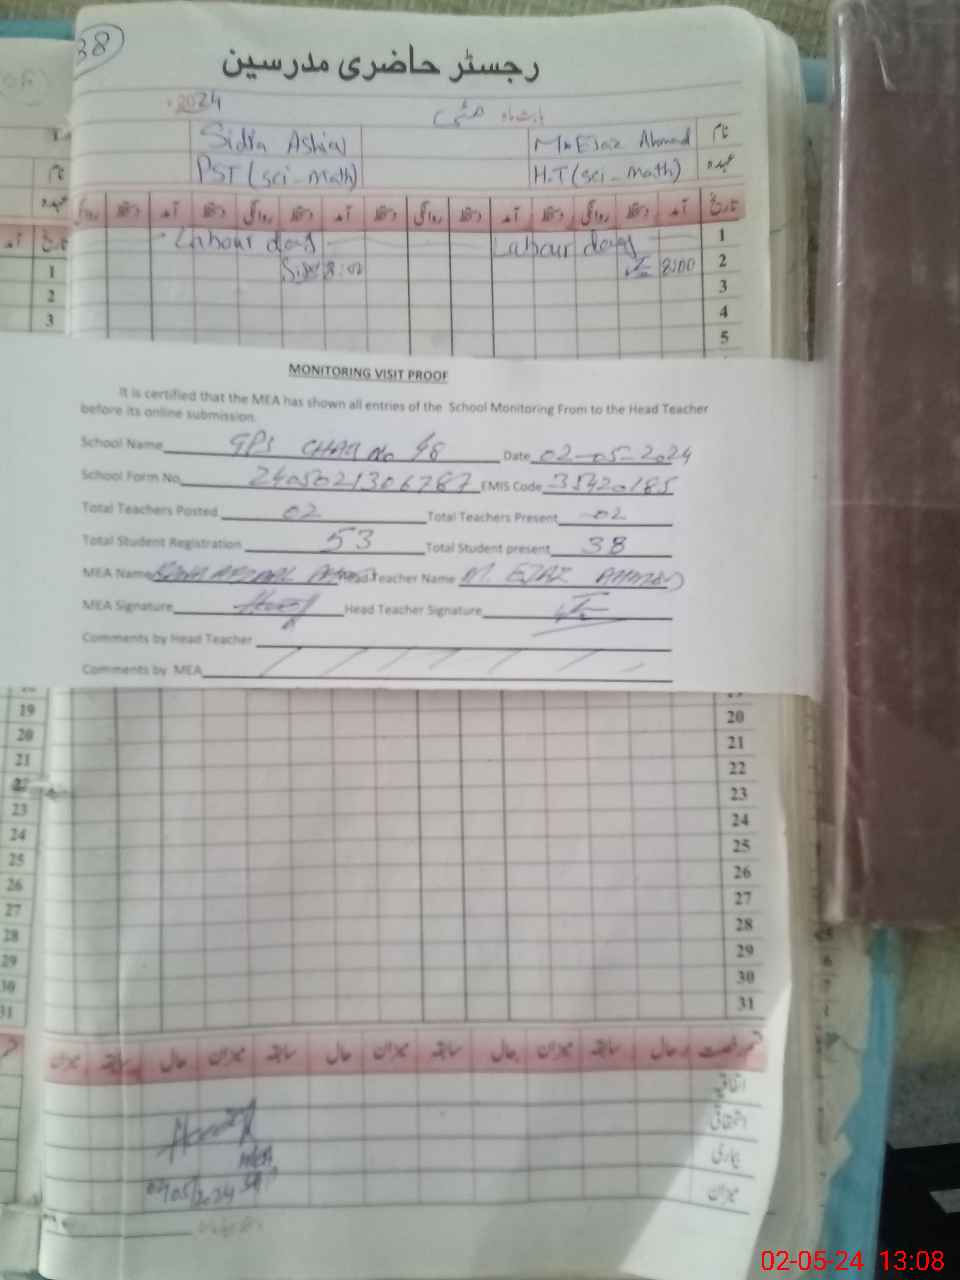 38
رجسٹر حاضری مدرسین
2024 مئی
Sidra Ashraf M. Ejaz Ahmad نام
PST (sci-math) H.T (sci-math) عہدہ
تاریخ آمد دستخط روانگی دستخط آمد دستخط روانگی دستخط آمد دستخط روانگی دستخط آمد
Labour day Labour day 1
8:00 8:00 2
3
4
5
MONITORING VISIT PROOF
It is certified that the MEA has shown all entries of the School Monitoring From to the Head Teacher
before its online submission.
School Name GPS CHAK No 48 Date 02-05-2024
School Form No 2405021306787 EMIS Code 35420185
Total Teachers Posted 02 Total Teachers Present 02
Total Student Registration 53 Total Student present 38
MEA Name Head Teacher Name M. EJAZ AHMAD
MEA Signature Head Teacher Signature
Comments by Head Teacher
Comments by MEA
19
20
21
22
23
24
25
26
27
28
29
30
31
حال سابقہ میزان حال سابقہ میزان حال سابقہ میزان حال سابقہ میزان
اتفاقیہ
استحقاقیہ
بیماری
میزان
MEA
02/05/2024
02-05-24 13:08